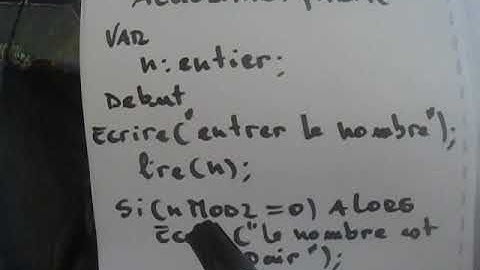 VAR
n: entier;
Debut
Ecrire("entrer le nombre");
lire(n);
Si(n MOD2 = 0) ALORS
("le nombre est
pair");